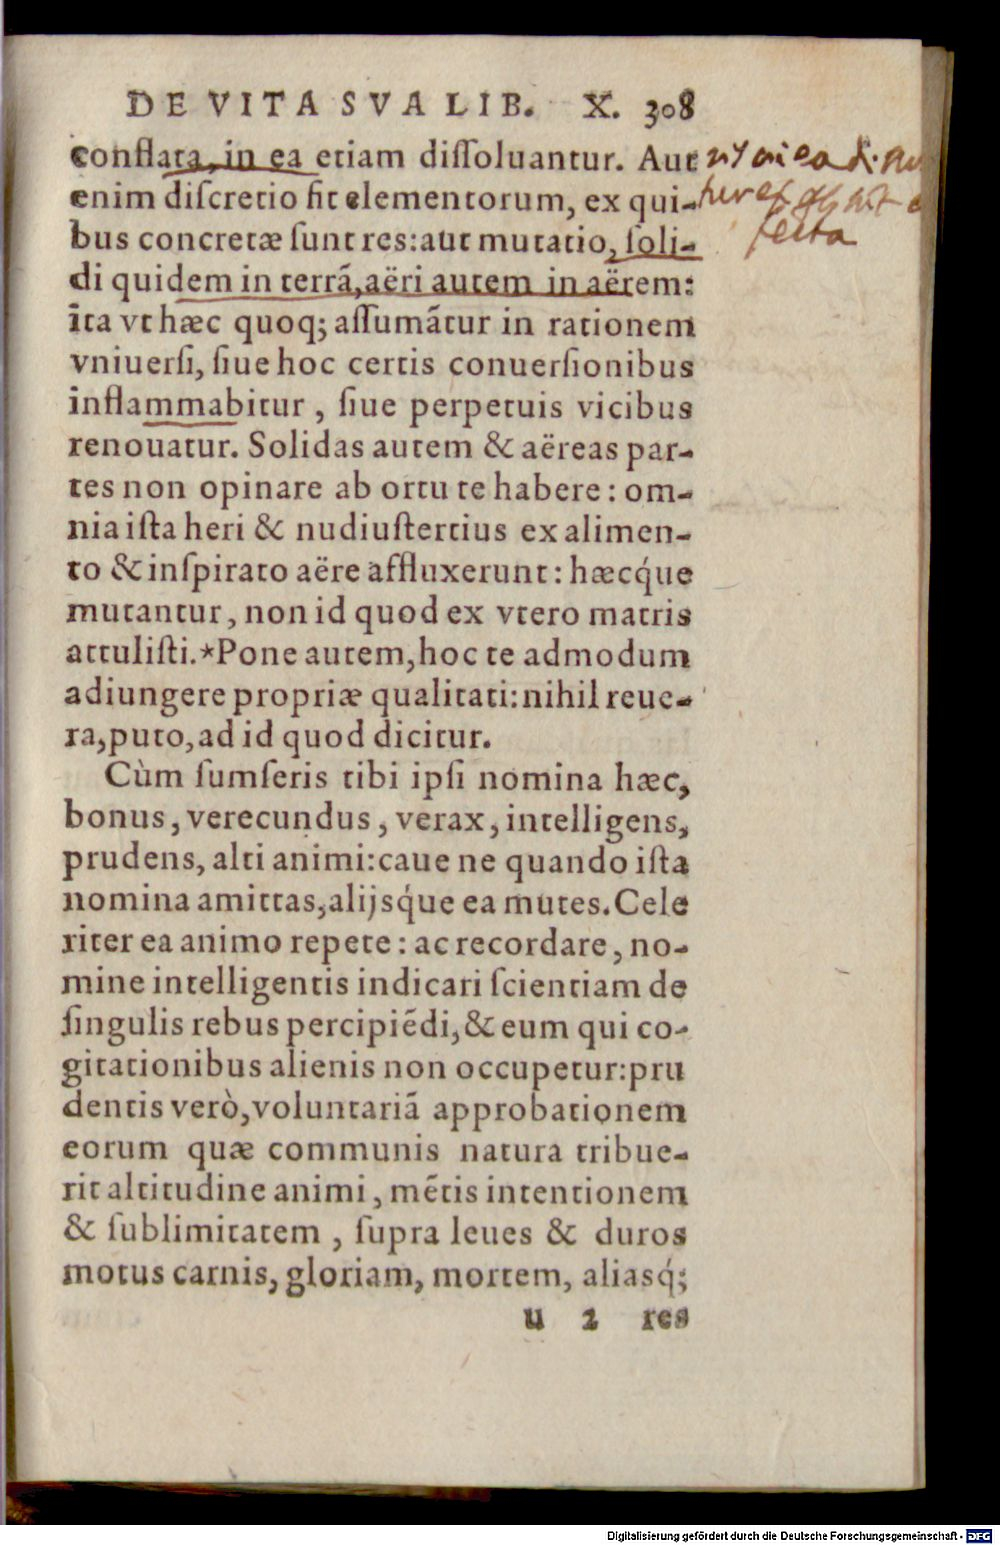 DE VITA SVA LIB. X. 308
conflata, in ea etiam dissoluantur. Aut
enim discretio fit elementorum, ex qui-
bus concretæ sunt res: aut mutatio, soli-
di quidem in terrã, aëri autem in aërem:
ita vt hæc quoq; assumãtur in rationem
vniuersi, siue hoc certis conuersionibus
inflammabitur, siue perpetuis vicibus
renouatur. Solidas autem & aëreas par-
tes non opinare ab ortu te habere: om-
nia ista heri & nudiustertius ex alimen-
to & inspirato aëre affluxerunt: hæcq́ue
mutantur, non id quod ex vtero matris
attulisti.*Pone autem, hoc te admodum
adiungere propriæ qualitati: nihil reue-
ra, puto, ad id quod dicitur.
Cùm sumseris tibi ipsi nomina hæc,
bonus, verecundus, verax, intelligens,
prudens, alti animi: caue ne quando ista
nomina amittas, alijsq́ue ea mutes. Cele
riter ea animo repete: ac recordare, no-
mine intelligentis indicari scientiam de
singulis rebus percipiẽdi, & eum qui co-
gitationibus alienis non occupetur: pru
dentis verò, voluntariã approbationem
eorum quæ communis natura tribue-
rit altitudine animi, mẽtis intentionem
& sublimitatem, supra leues & duros
motus carnis, gloriam, mortem, aliasq́;
u 2 res
Digitalisierung gefördert durch die Deutsche Forschungsgemeinschaft - DFG